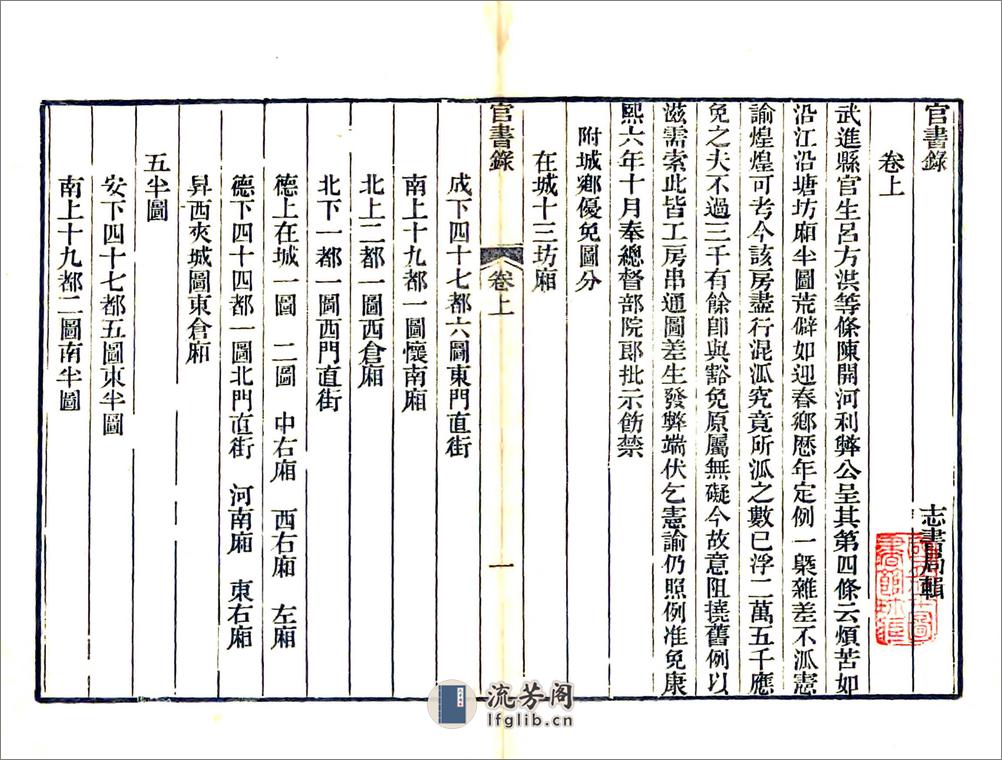 官書錄
卷上
志書局輯
武進縣官生呂方洪等條陳開河利弊公呈其第四條云煩苦如
沿江沿塘坊廂半圖荒僻如迎春鄉歷年定例一槩雜差不泒憲
諭煌煌可考今該房盡行混泒究竟所泒之數已浮二萬五千應
免之夫不過三千有餘卽與豁免原屬無礙今故意阻撓舊例以
滋需索此皆工房串通圖差生發弊端伏乞憲諭仍照例准免康
熙六年十月奉總督部院郎批示飭禁
附城鄉優免圖分
在城十三坊廂
官書錄
卷上
一
成下四十七都六圖東門直街
南上十九都一圖懷南廂
北上二都一圖西倉廂
北下一都一圖西門直街
德上在城一圖 二圖 中右廂 西右廂 左廂
德下四十四都一圖北門直街 河南廂 東右廂
昇西夾城圖東倉廂
五半圖
安下四十七都五圖東半圖
南上十九都二圖南半圖
流芳阁
lfglib.cn